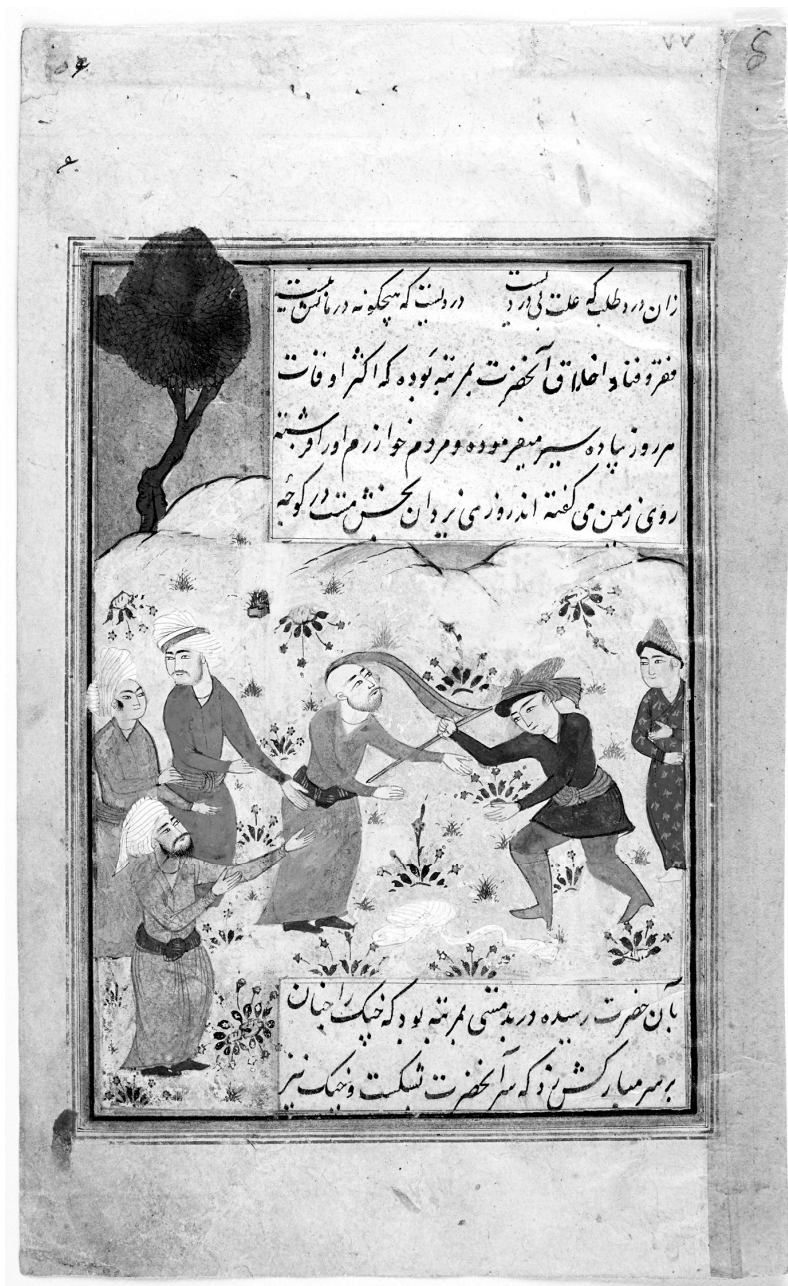 ۷۷
زان درد طلب که علت بی دردیست دردیست که هیچگونه درمانش نیست
فقر و فنا و اخلاق آنحضرت بمرتبه بوده که اکثر اوقات
هر روز پیاده سیر میفرموده و مردم خوارزم او را فرشته
روی زمین می گفته اند روزی نزدان بخش مست در کوچه
بآن حضرت رسیده در بدمستی بمرتبه بود که خچک را چنان
بر سر مبارکش زد که سر آنحضرت شکست و خچک نیز